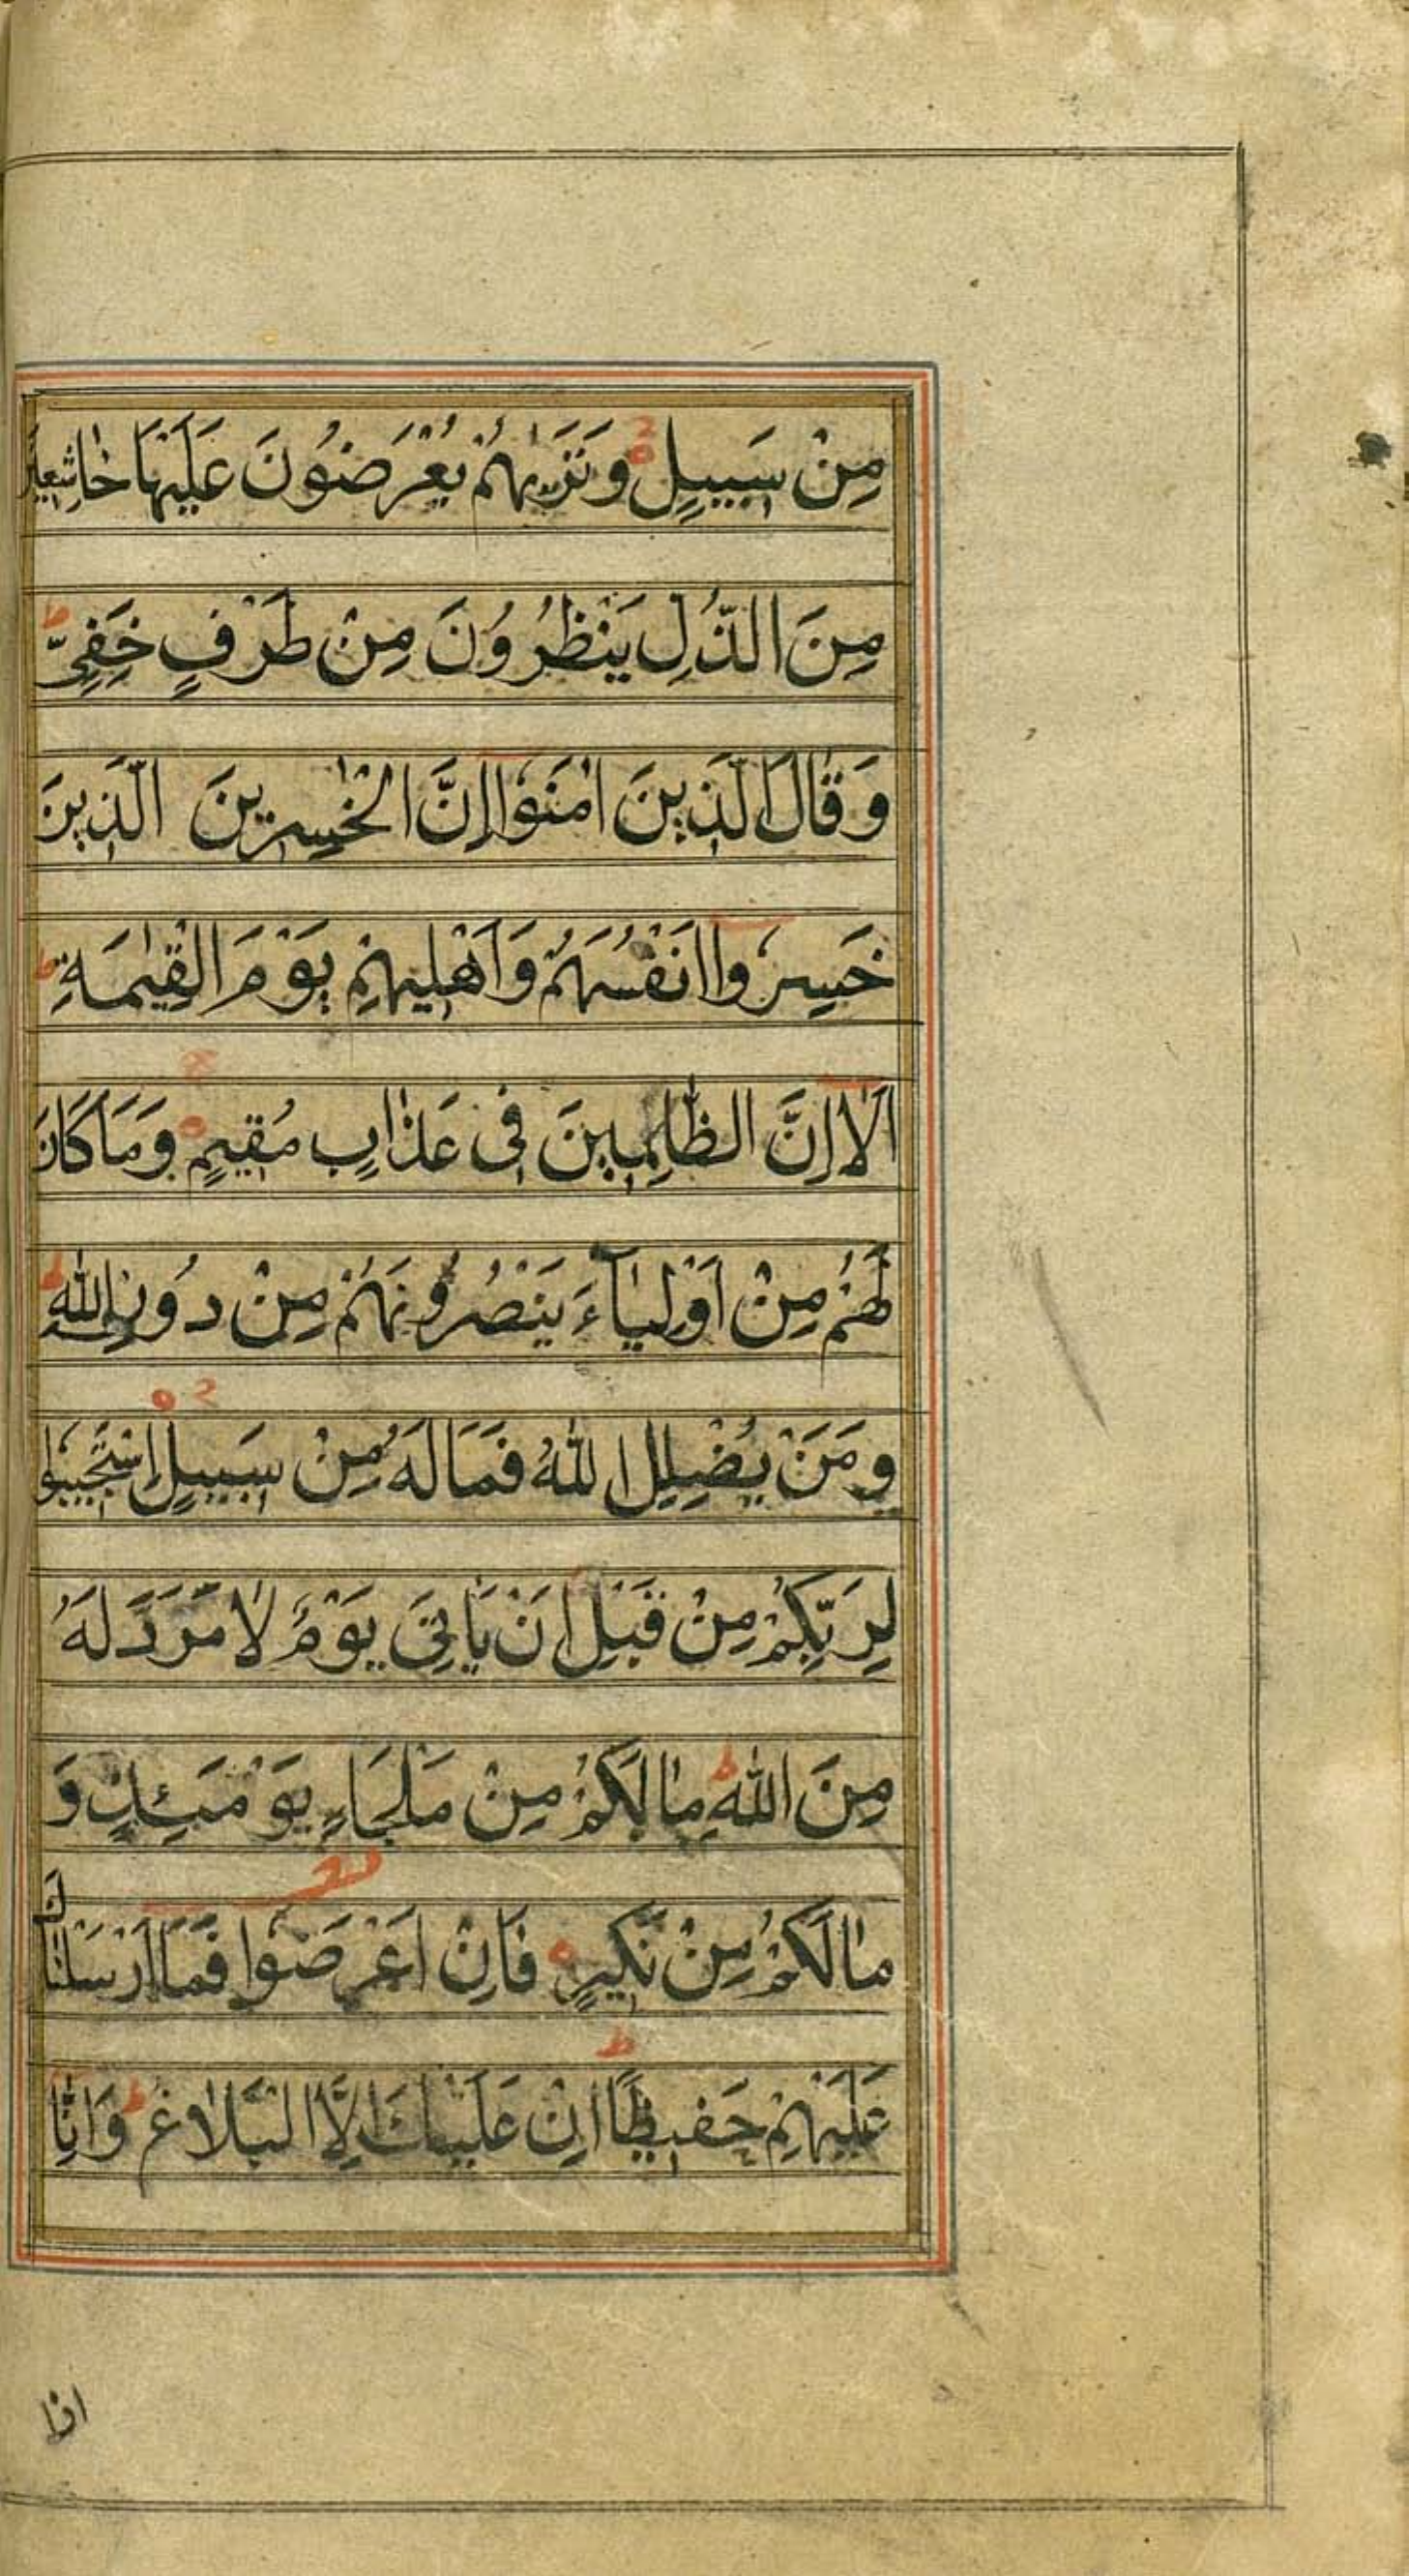 مِنْ سَبِيلٍ وَتَرٰيهُمْ يُعْرَضُونَ عَلَيْهَا خَاشِعِينَ
مِنَ الذُّلِ يَنْظُرُونَ مِنْ طَرْفٍ خَفِيٍّ ط
وَقَالَ الَّذِينَ اٰمَنُوٓا اِنَّ الْخٰسِرِينَ الَّذِينَ
خَسِرُوٓا اَنْفُسَهُمْ وَاَهْلِيهِمْ يَوْمَ الْقِيٰمَةِ ط
اَلَآ اِنَّ الظّٰلِمِينَ فِى عَذَابٍ مُقِيمٍ وَمَا كَانَ
لَهُمْ مِنْ اَوْلِيَآءَ يَنْصُرُونَهُمْ مِنْ دُونِ اللّٰهِ ط
وَمَنْ يُضْلِلِ اللّٰهُ فَمَالَهُ مِنْ سَبِيلٍ اِسْتَجِيبُوا
لِرَبِّكُمْ مِنْ قَبْلِ اَنْ يَاْتِىَ يَوْمٌ لَا مَرَدَّ لَهُ
مِنَ اللّٰهِ ط مَالَكُمْ مِنْ مَلْجَاءٍ يَوْمَئِذٍ وَ
مَالَكُمْ مِنْ نَكِيرٍ فَاِنْ اَعْرَضُوا فَمَآ اَرْسَلْنَاكَ
عَلَيْهِمْ حَفِيظًا ط اِنْ عَلَيْكَ اِلَّا الْبَلَاغُ ط وَاِنَّا
اذا